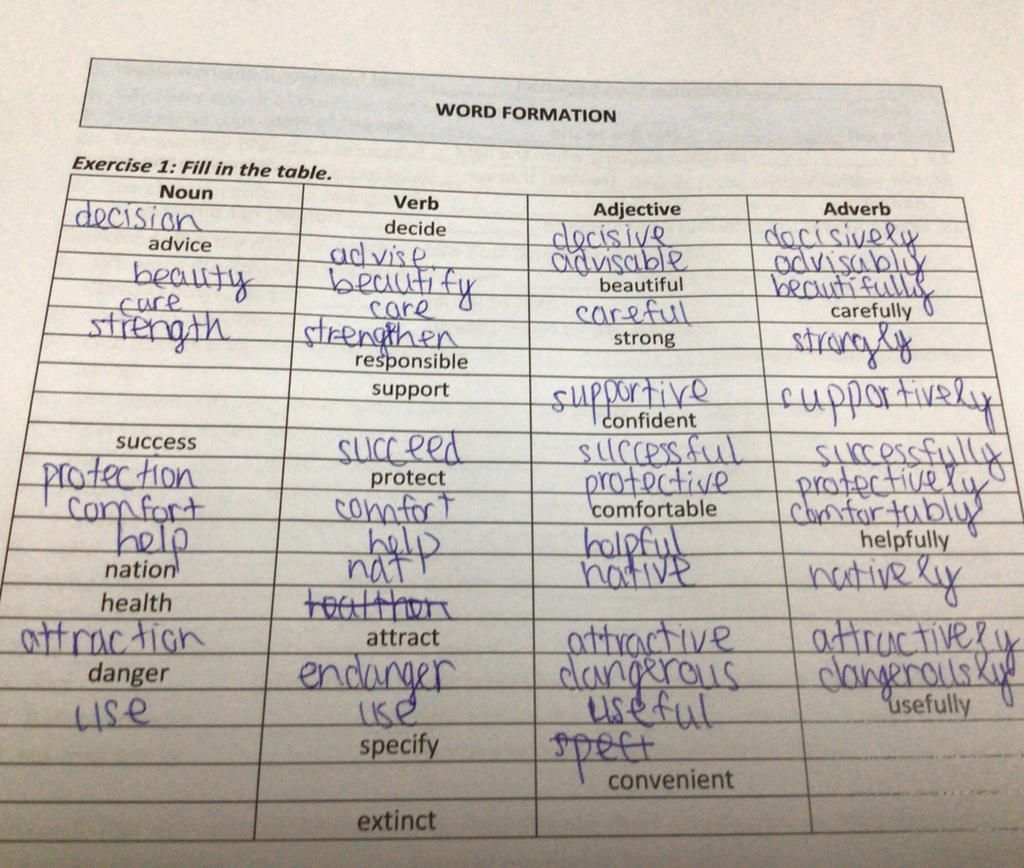 WORD FORMATION
Exercise 1: Fill in the table.
Noun Verb Adjective Adverb
decision decide decisive decisively
advice advise advisable advisably
beauty beautify beautiful beautifully
care care careful carefully
strength strengthen strong strongly
responsible
support supportive supportively
confident
success succeed successful successfully
protection protect protective protectively
comfort comfort comfortable comfortably
help help helpful helpfully
nation nati native natively
health
attraction attract attractive attractively
danger endanger dangerous dangerously
use use useful usefully
specify spect
convenient
extinct